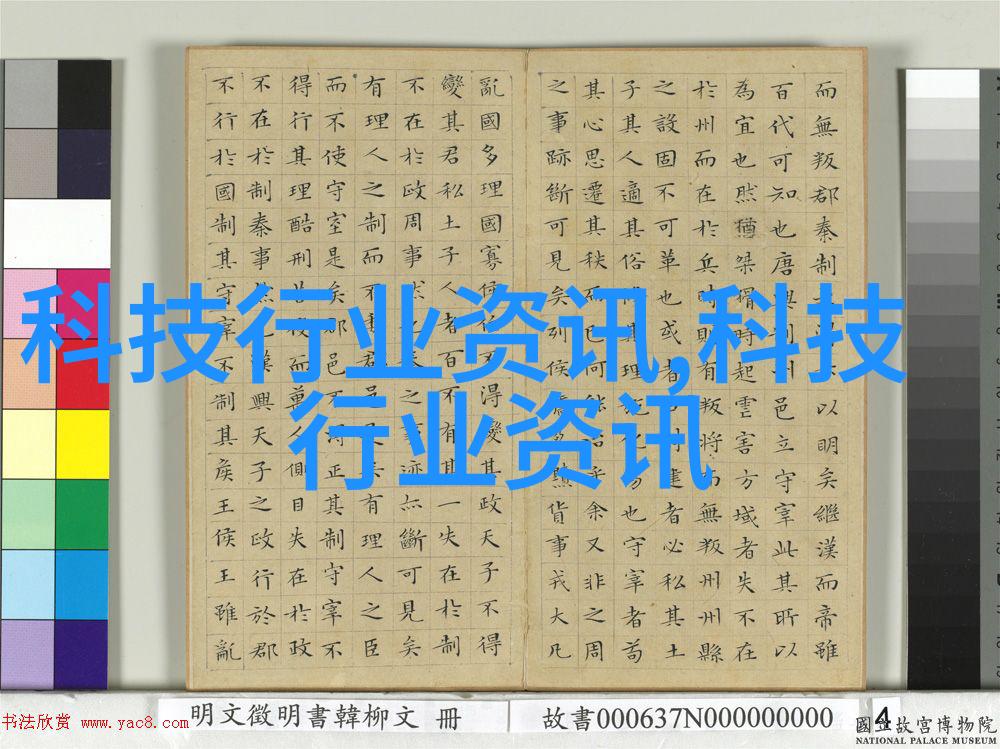 科技行业资讯,科技
行业资讯
而無叛郡秦制以明矣繼漢而帝雖
百代可知也唐興制州邑立守宰此其所以
為宜也然猶桀猾時起虐害方域者失不在
於州而在於兵時則有叛將而無叛州州縣
之設固不可革也或者建者必私其土
子其人適其俗其理施化易也守宰者苟
其心思遷其秩而已何能治乎余又非之周
之事跡斷可見矣列侯黷貨事戎大凡
亂國多理國寡侯不得變其政天子不得
變其君私土子人者百不有其一失在於制
不在於政周事然之事迹亦斷可見矣
有理人之制而不郡邑是矣有理人之臣
而不使守宰是矣郡邑不得正其制守宰不
得行其理酷刑苦役而萬人側目失在於政
不在於制秦事然也漢興天子之政行於郡
不行於國制其守宰不制其侯王侯王雖亂
明文徵明書韓柳文 冊
故書000637N000000000
4
书法欣赏 www.yac8.com
國立故宮博物院
NATIONAL PALACE MUSEUM